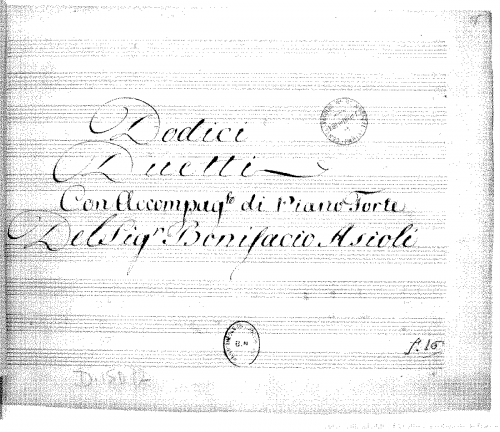 Dodici
Duetti
Con Accompag.to di Piano Forte
Del Sig.r Bonifacio Asioli
f. 16